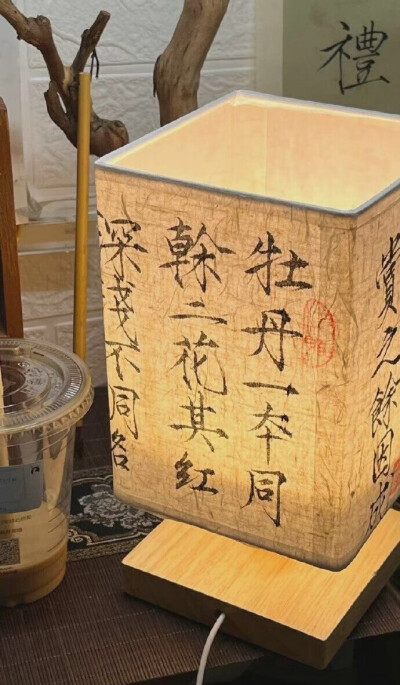 禮
賞之餘因成
牡丹一本同
榦二花其紅
深淺不同名